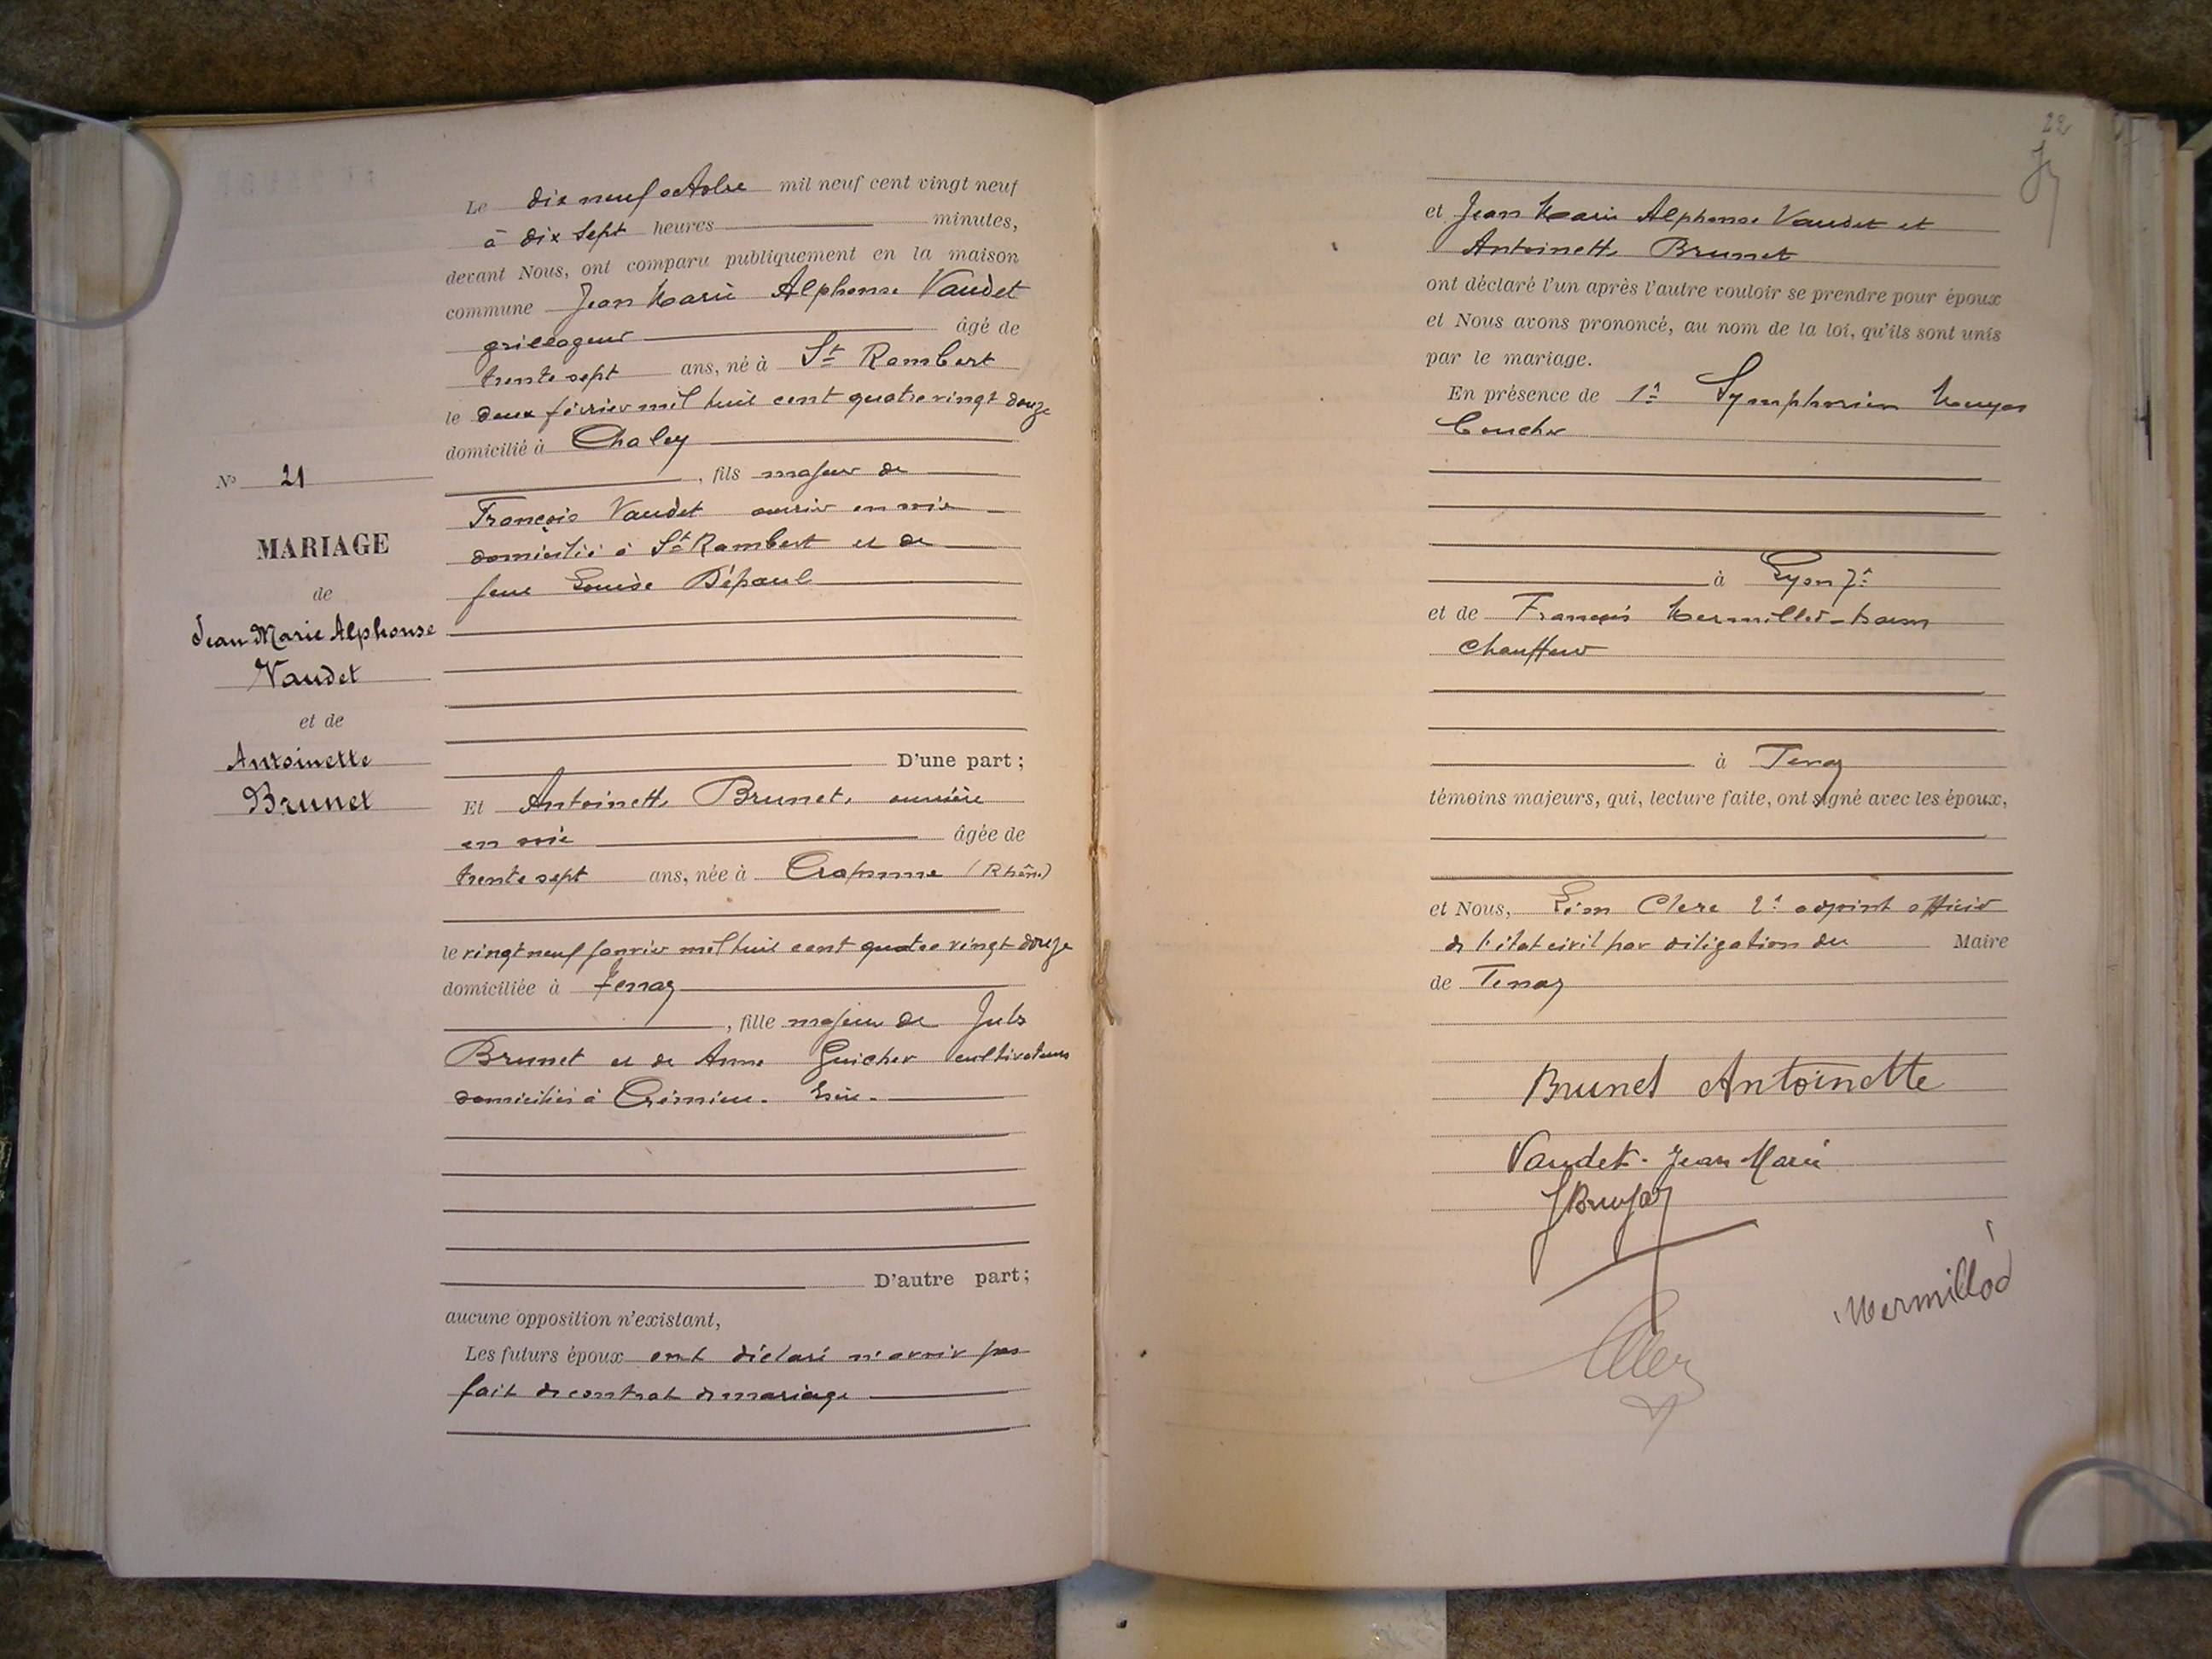 Le dix neuf octobre mil neuf cent vingt neuf
à dix sept heures minutes,
devant Nous, ont comparu publiquement en la maison
commune Jean Marie Alphonse Vaudet
grillageur âgé de
trente sept ans, né à St Rambert
le deux février mil huit cent quatre vingt douze
domicilié à Chaley
, fils majeur de
François Vaudet ouvrier en soie
domicilié à St Rambert et de
feue Louise Dépaul
D'une part ;
Et Antoinette Brunet, ouvrière
en soie âgée de
trente sept ans, née à Craponne (Rhône)
le vingt neuf janvier mil huit cent quatre vingt douze
domiciliée à Tenay
, fille majeure de Jules
Brunet et de Anne Guicher cultivateurs
domiciliés à Crémieu. Isère.
D'autre part ;
aucune opposition n'existant,
Les futurs époux ont déclaré n'avoir pas
fait de contrat de mariage
No 21
MARIAGE
de
Jean Marie Alphonse
Vaudet
et de
Antoinette
Brunet
22
et Jean Marie Alphonse Vaudet et
Antoinette Brunet
ont déclaré l'un après l'autre vouloir se prendre pour époux
et Nous avons prononcé, au nom de la loi, qu'ils sont unis
par le mariage.
En présence de 1° Symphorien
à Lyon 7e
et de François
chauffeur
à Tenay
témoins majeurs, qui, lecture faite, ont signé avec les époux,
et Nous, Clerc 2e adjoint officier
de l'état civil par délégation du Maire
de Tenay
Brunet Antoinette
Vaudet. Jean Marie
Mermillod